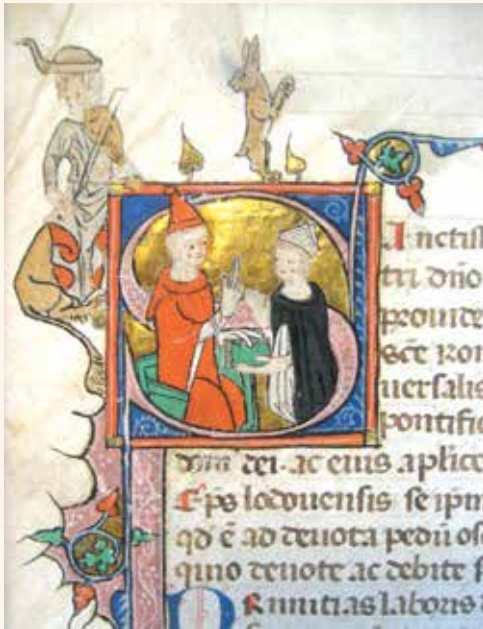 S Anctiss
tri dño
prouide
sc̄e rom
uersalis
pontific
dom dei. ac eius ap̄lice
ep̄s lodouensis se ip̄m
qd̄ ē ad deuota pedū osc
deuote ac debite
Primitias laboris